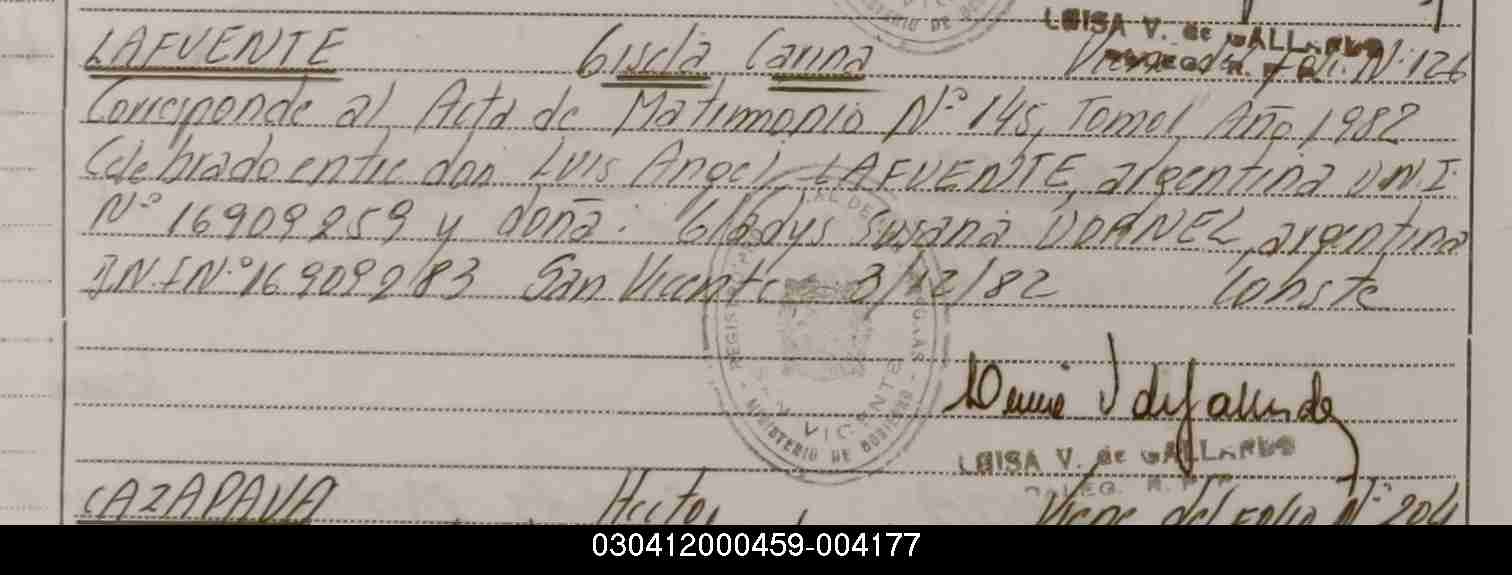 MINISTERIO DE GOB
LUISA V. de GALLARDO
LAFUENTE Gisela Carina Viene del fol: Nº 126
Corresponde al Acta de Matrimonio Nº 145, Tomo I, Año 1982
Celebrado entre don Luis Angel LAFUENTE, argentina DNI.
Nº 16909259 y doña: Gladys Susana DORNEL, argentina
D.N.I Nº 16909283 San Vicente 3/12/82 Conste
MINISTERIO DE GOBIERNO
LUISA V. de GALLARDO
DELEG. R. P.
CAZAPAVA Hector Viene del folio Nº 204
030412000459-004177